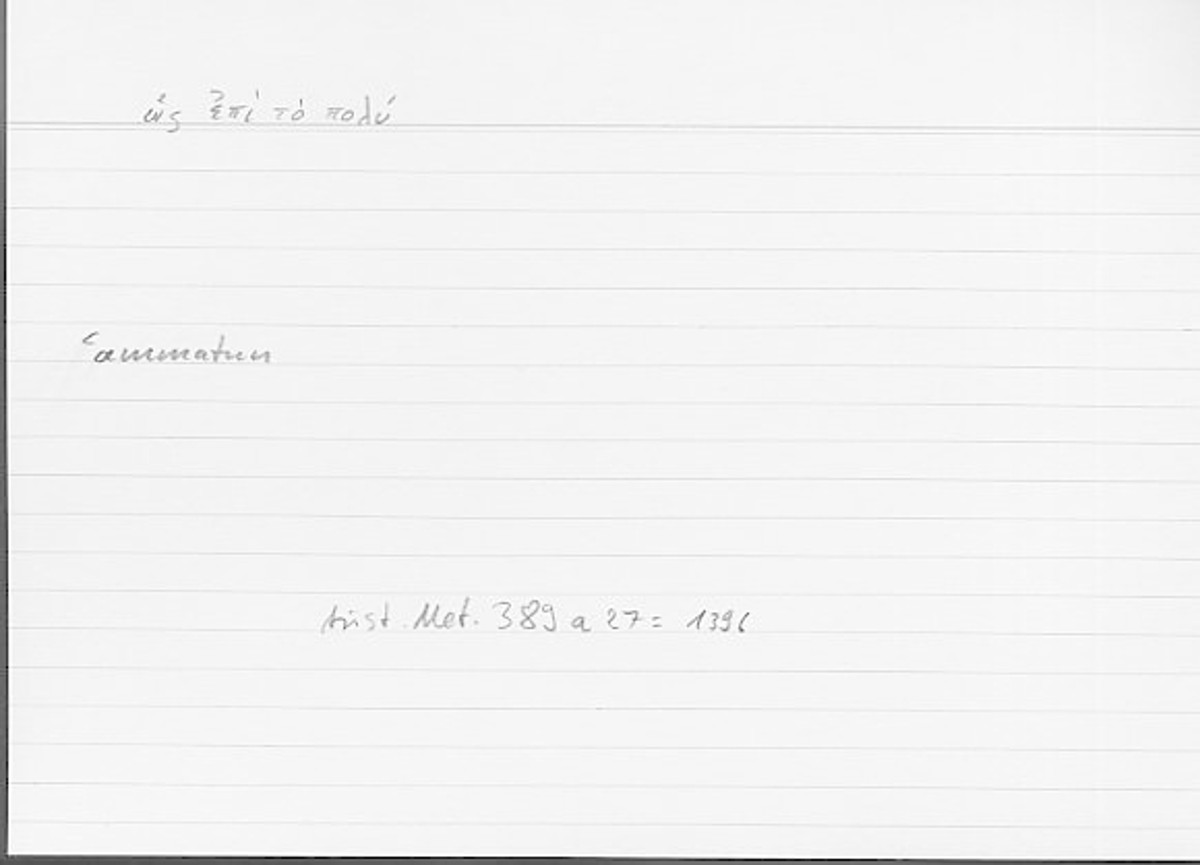 ὡς ἐπὶ τὸ πολύ
ʿammatun
Arist. Met. 389 a 27 = 1396